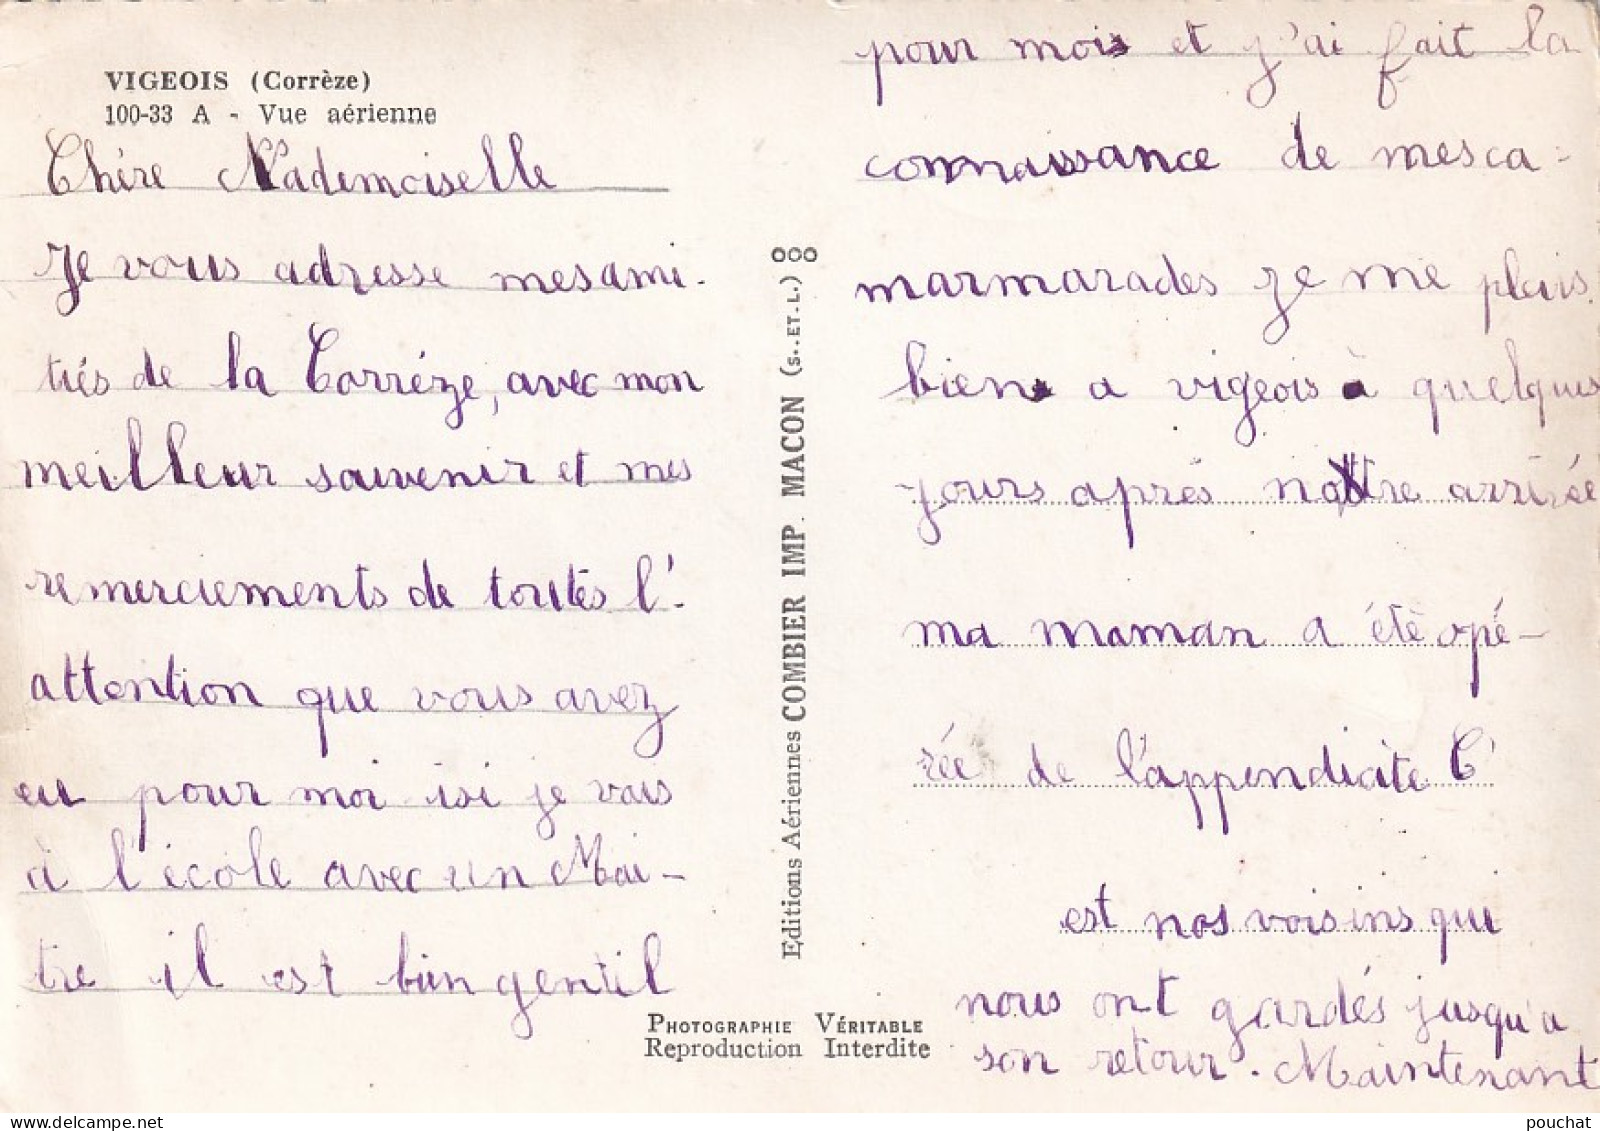 VIGEOIS (Corrèze)
100-33 A - Vue aérienne
Chère Mademoiselle
Je vous adresse mesami-
tiés de la Corrèze, avec mon
meilleur souvenir et mes
remerciements de toutes l'-
attention que vous avez
eu pour moi isi je vais
à l'école avec un Mai-
tre il est bien gentil
Editions Aériennes COMBIER IMP. MACON (S.-ET-L.)
PHOTOGRAPHIE VÉRITABLE
Reproduction Interdite
pour mois et j'ai fait la
connaissance de mesca-
marmarades je me plais
bien a vigeois à quelques
jours après nottre arrivée
ma maman a été opé-
rée de l'appendicite C'
est nos voisins qui
nous ont gardés jusqu'a
son retour. Maintenant
pouchat